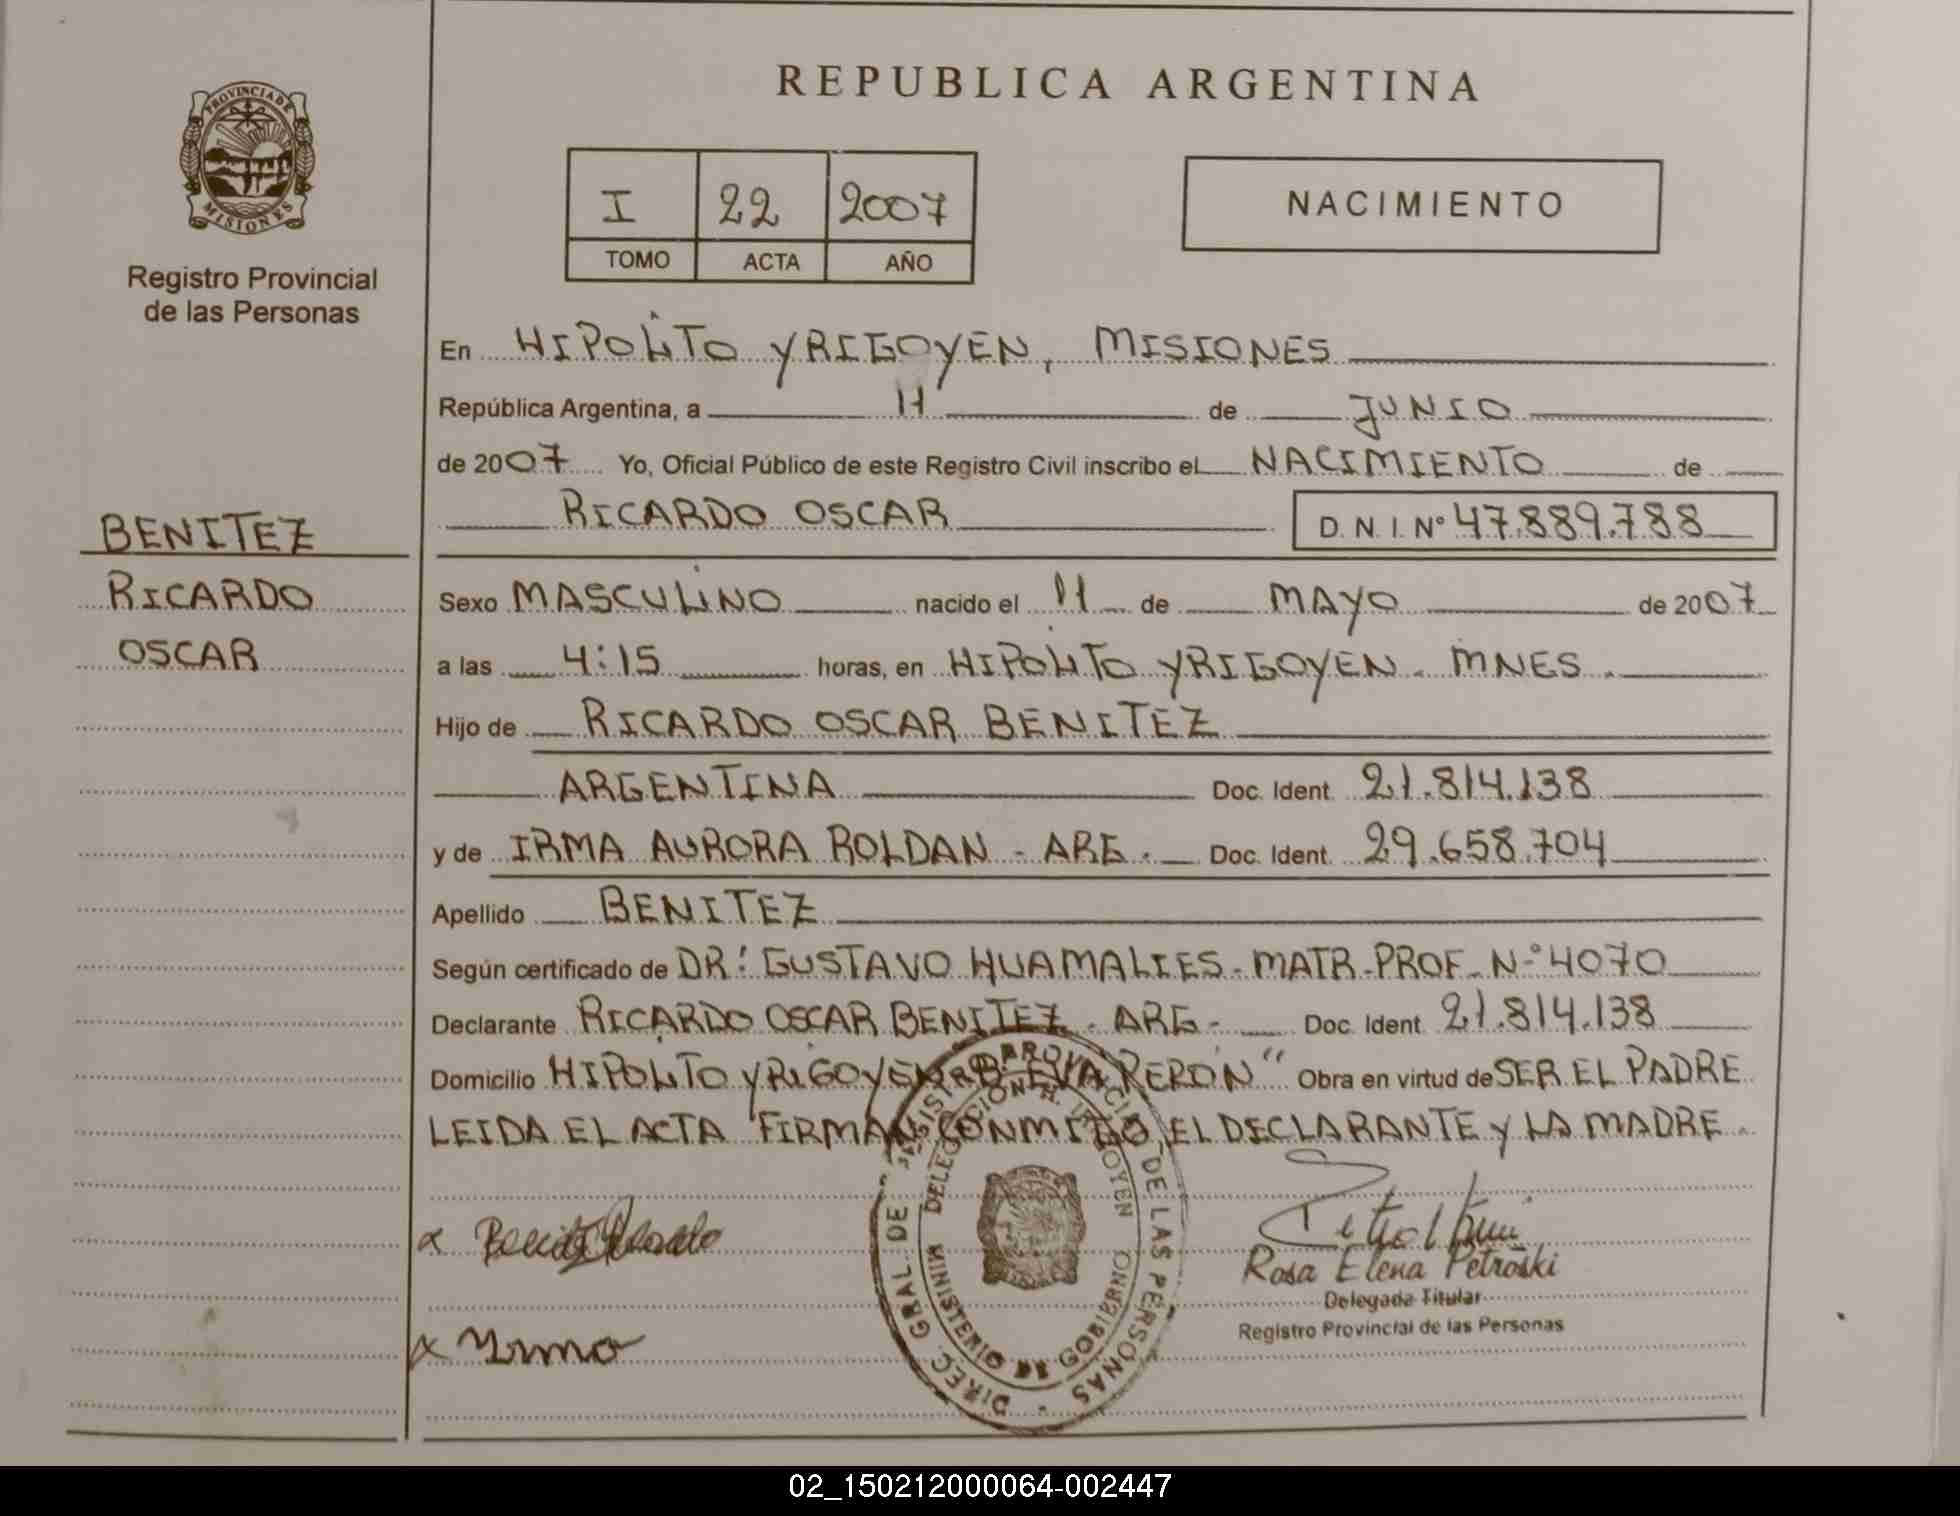 REPUBLICA ARGENTINA
PROVINCIA DE MISIONES
Registro Provincial
de las Personas
I 22 2007
TOMO ACTA AÑO
NACIMIENTO
En HIPOLITO YRIGOYEN, MISIONES
República Argentina, a 11 de JUNIO
de 2007 Yo, Oficial Público de este Registro Civil inscribo el NACIMIENTO de
RICARDO OSCAR D.N.I. Nº 47.889.788
BENITEZ
RICARDO
OSCAR
Sexo MASCULINO nacido el 11 de MAYO de 2007
a las 4:15 horas, en HIPOLITO YRIGOYEN. MNES.
Hijo de RICARDO OSCAR BENITEZ
ARGENTINA Doc. Ident. 21.814.138
y de IRMA AURORA ROLDAN - ARG. Doc. Ident. 29.658.704
Apellido BENITEZ
Según certificado de DR: GUSTAVO HUAMALIES - MATR. PROF. Nº 4070
Declarante RICARDO OSCAR BENITEZ - ARG - Doc. Ident. 21.814.138
Domicilio HIPOLITO YRIGOYEN Bº EVA PERON" Obra en virtud de SER EL PADRE
LEIDA EL ACTA FIRMAN CONMIGO EL DECLARANTE Y LA MADRE.
DIREC. GRAL DE REGISTRO PROVINCIAL DE LAS PERSONAS
DELEGACION H. YRIGOYEN
MINISTERIO DE GOBIERNO
x Benitez Ricardo
x Irma
Rosa Elena Petroski
Delegada Titular
Registro Provincial de las Personas
02_150212000064-002447